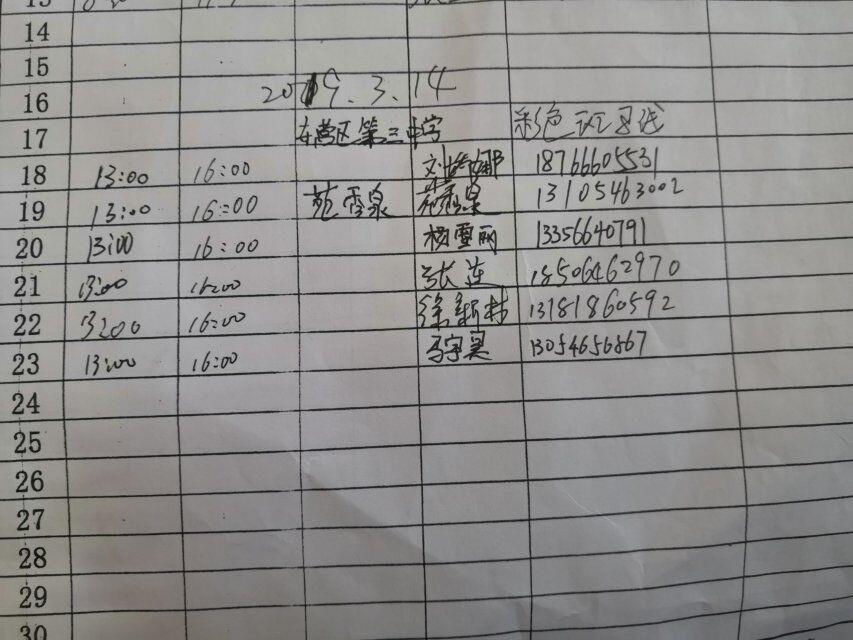 14
15
16 2019.3.14
17 东营区第三中学 彩色斑马线
18 13:00 16:00 18766605531
19 13:00 16:00 苑香泉 苑香泉 13105463002
20 13:00 16:00 杨雪丽 13356640791
21 13:00 16:00 张连 18506462970
22 13:00 16:00 徐新村 13181860592
23 13:00 16:00 13054656867
24
25
26
27
28
29
30